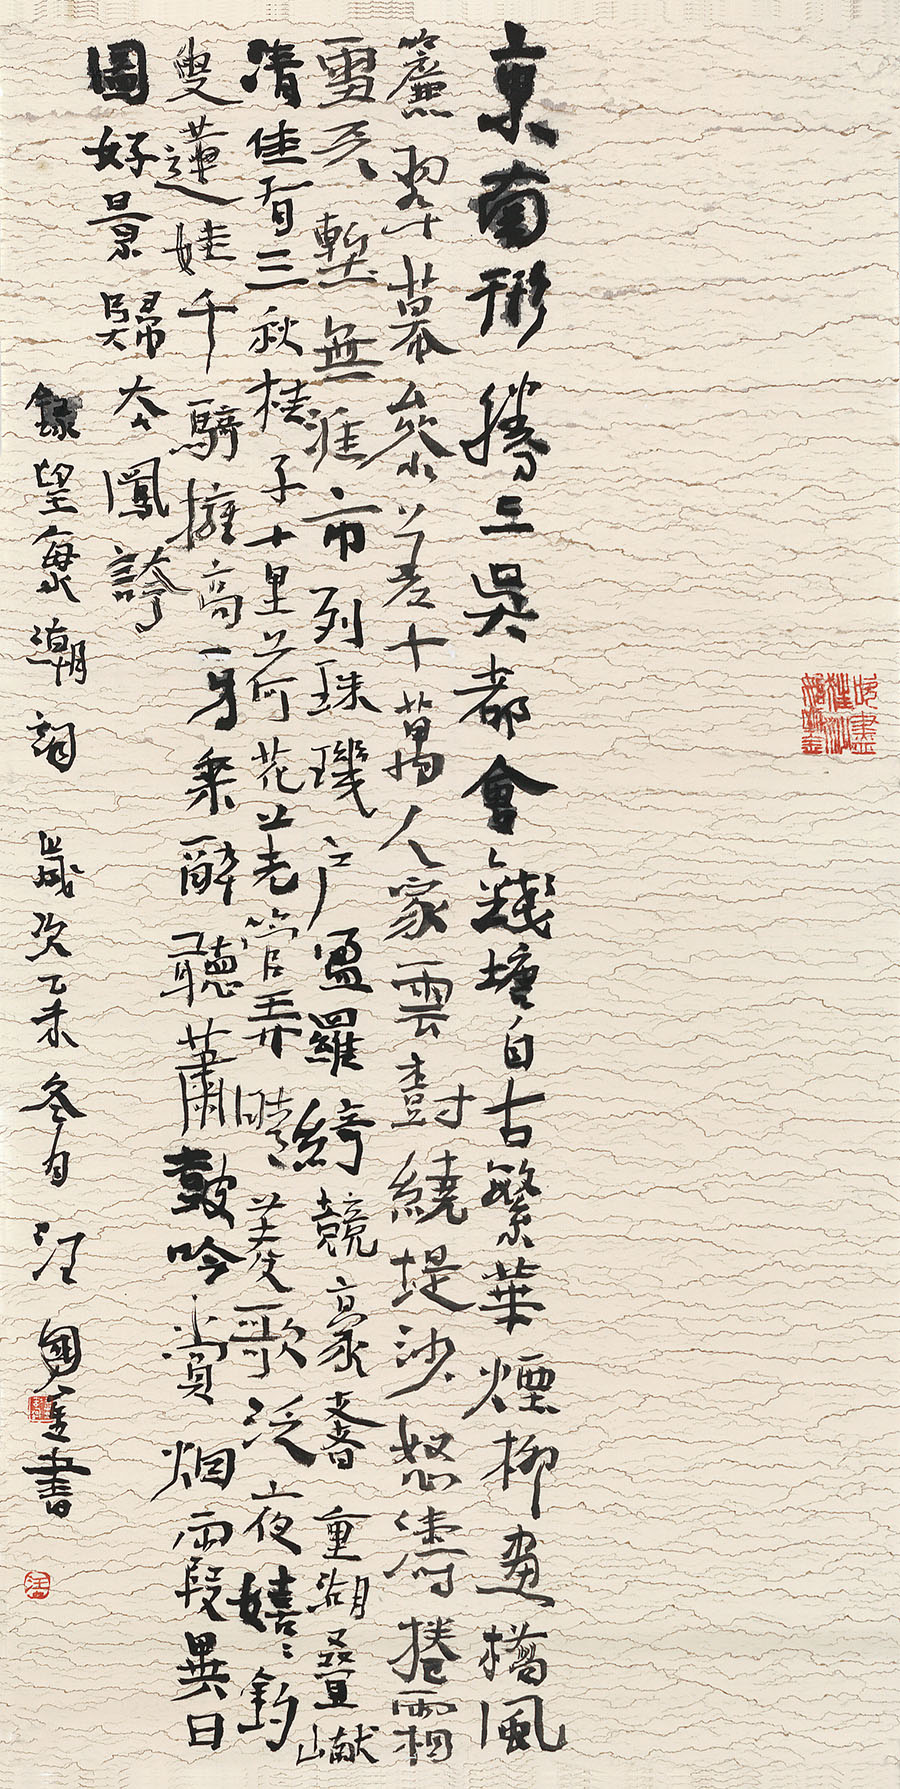 東南形勝三吳都會錢塘自古繁華煙柳畫橋風
簾翠幕參差十萬人家雲樹繞堤沙怒濤捲霜
雪天塹無涯市列珠璣户盈羅綺競豪奢重湖疊巘
清佳有三秋桂子十里荷花羌管弄晴菱歌泛夜嬉々釣
叟蓮娃千騎擁高牙乘醉聽蕭鼓吟賞烟霞異日
圖好景歸去鳳誇
錄望海潮詞 歲次乙未冬月 汪國金書
汪